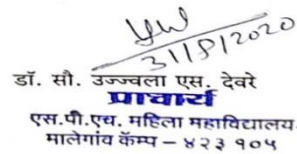 31/8/2020
डॉ. सौ. उज्ज्वला एस. देवरे
प्राचार्य
एस.पी.एच. महिला महाविद्यालय
मालेगांव कॅम्प – ४२३ १०५